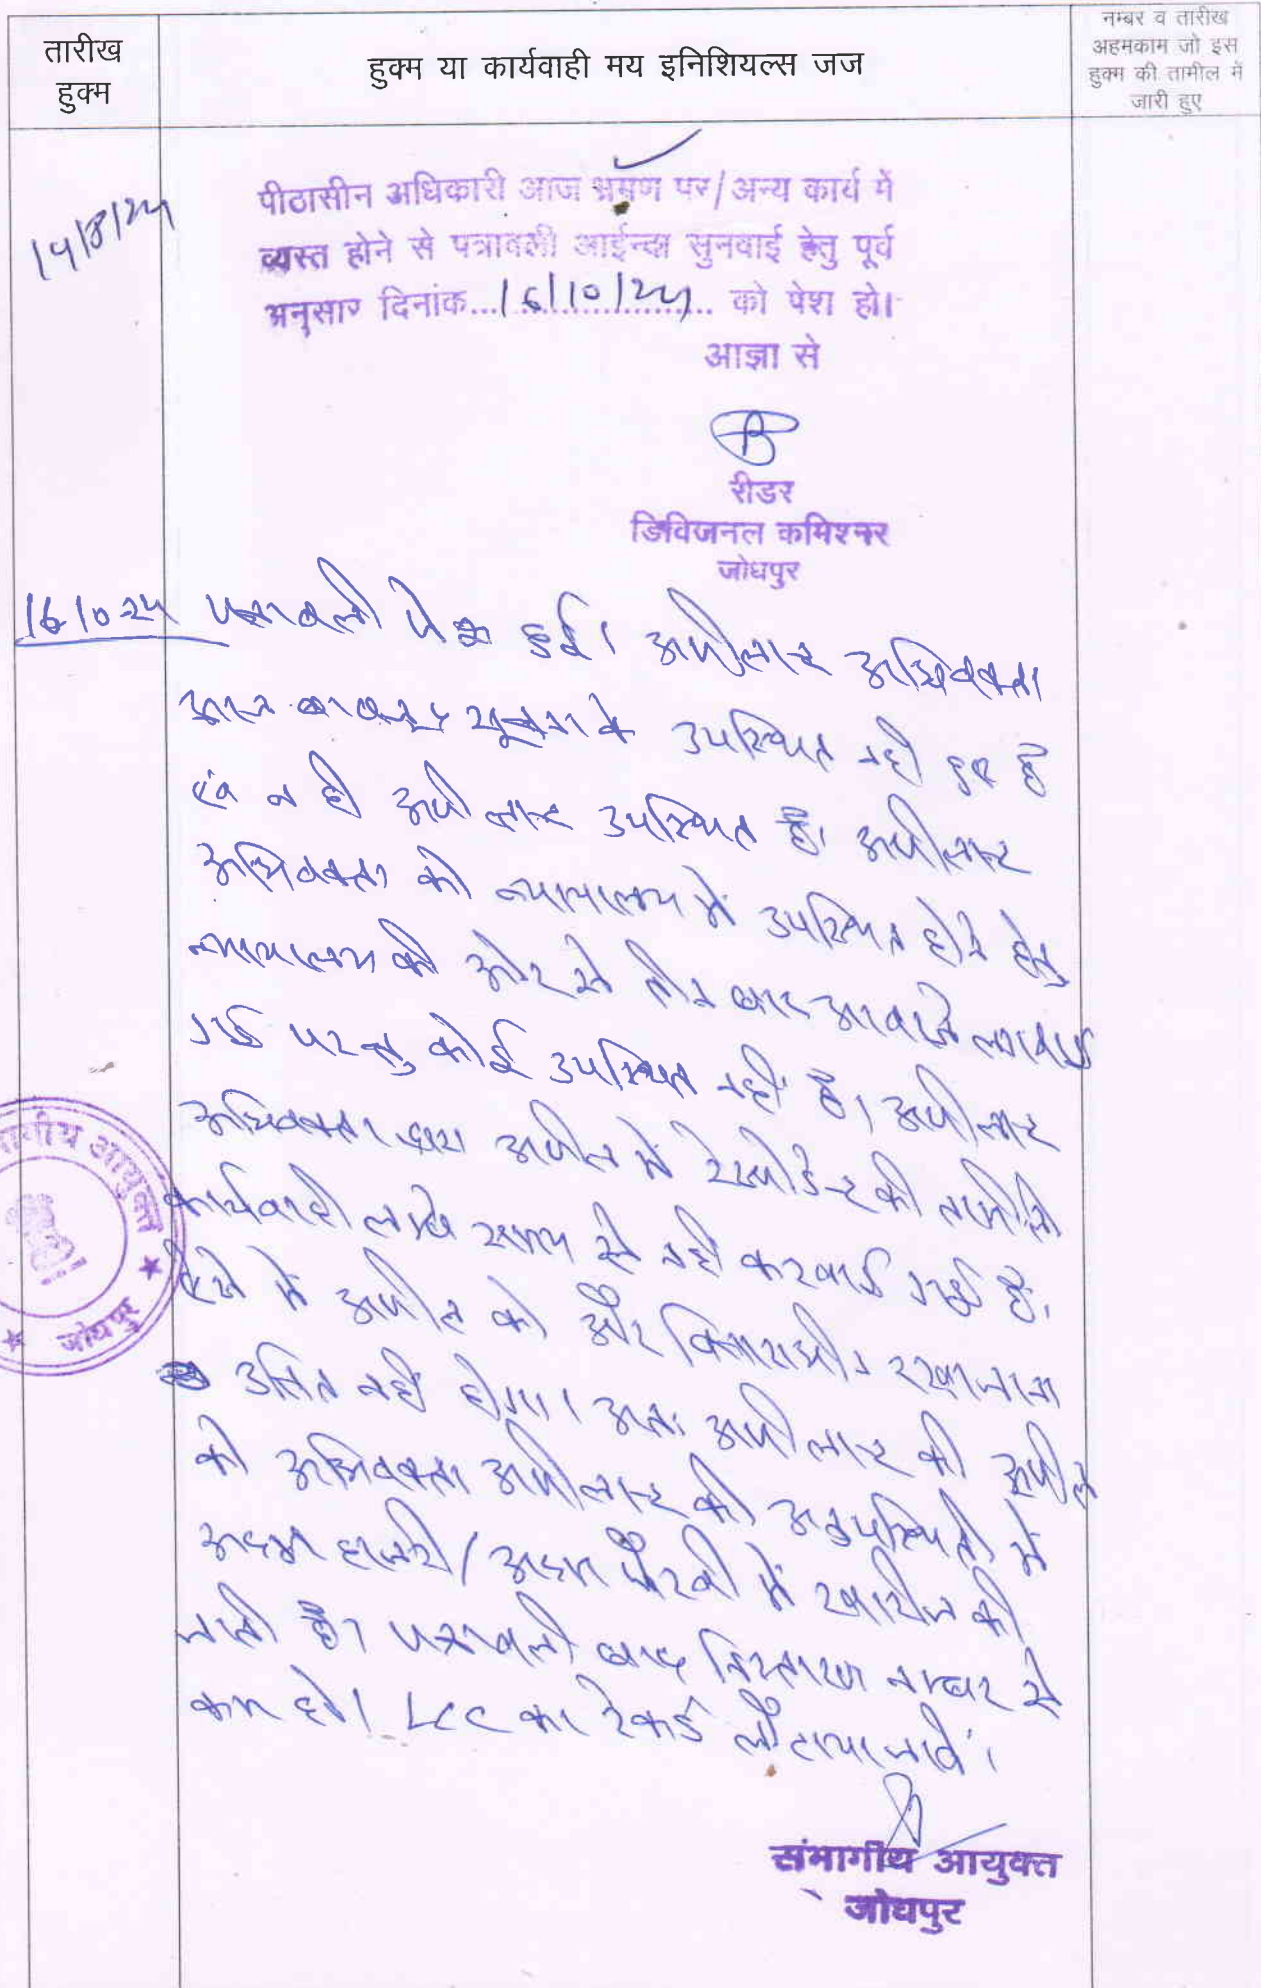 तारीख
हुक्म
हुक्म या कार्यवाही मय इनिशियल्स जज
नम्बर व तारीख
अहमकाम जो इस
हुक्म की तामील में
जारी हुए
14/8/24
पीठासीन अधिकारी आज भ्रमण पर/अन्य कार्य में
व्यस्त होने से पत्रावली आईन्दा सुनवाई हेतु पूर्व
अनुसार दिनांक...16/10/24... को पेश हो।
आज्ञा से
रीडर
डिविजनल कमिश्नर
जोधपुर
16-10-24 पत्रावली पेश हुई। अपीलान्ट अधिवक्ता
आज बावजूद सूचना के उपस्थित नही हुए है
एवं न ही अपीलान्ट उपस्थित है। अपीलान्ट
अधिवक्ता को न्यायालय में उपस्थित होने हेतु
न्यायालय की ओर से तीन बार आवाजे लगवाई
गई परन्तु कोई उपस्थित नहीं है। अपीलान्ट
अधिवक्ता द्वारा अपील में रेस्पोडेन्ट की तामीली
कार्यवाही लम्बे समय से नही करवाई गई है।
ऐसे में अपील को और विचाराधीन रखा जाना
उचित नहीं होगा। अतः अपीलान्ट की अपील
को अधिवक्ता अपीलान्ट की अनुपस्थिती में
अदम हाजरी/अदम पैरवी में खारीज की
जाती है। पत्रावली बाद निस्तारण नम्बर से
कम हो। LCC का रेकर्ड लौटाया जावें।
संभागीय आयुक्त
जोधपुर
आयुक्त
जोधपुर